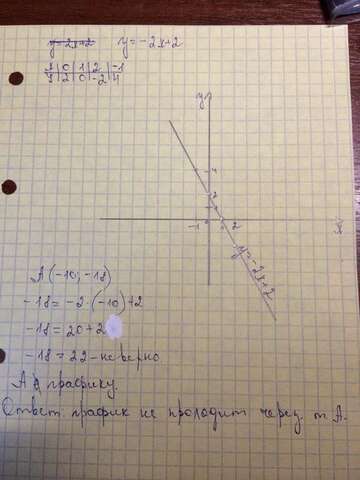 y=-2x+2 y=-2x+2
x 0 1 2 -1
y 2 0 -2 4
y
2
-1 0 1 2 x
y=-2x+2
A (-10; -18)
-18 = -2·(-10)+2
-18 = 20+2
-18 = 22 - неверно
A ∉ графику.
Ответ: график не проходит через т A.